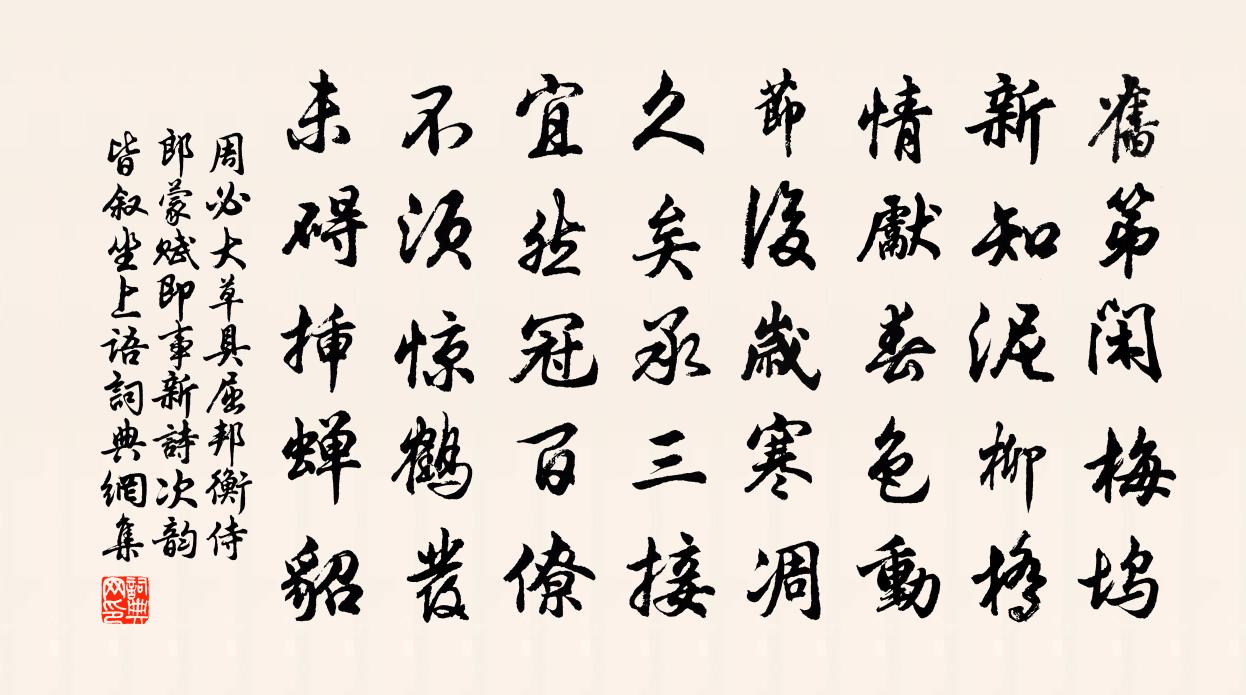 舊第閑梅塢
新知泥柳橋
情獻春色動
節後歲寒凋
久矣承三接
宜然冠百僚
不須惊鶴發
未碍揷蟬貂
周必大草具屈邦衡侍
郎蒙赋即事新詩次韵
皆叙坐上语詞典網集
詞典网印